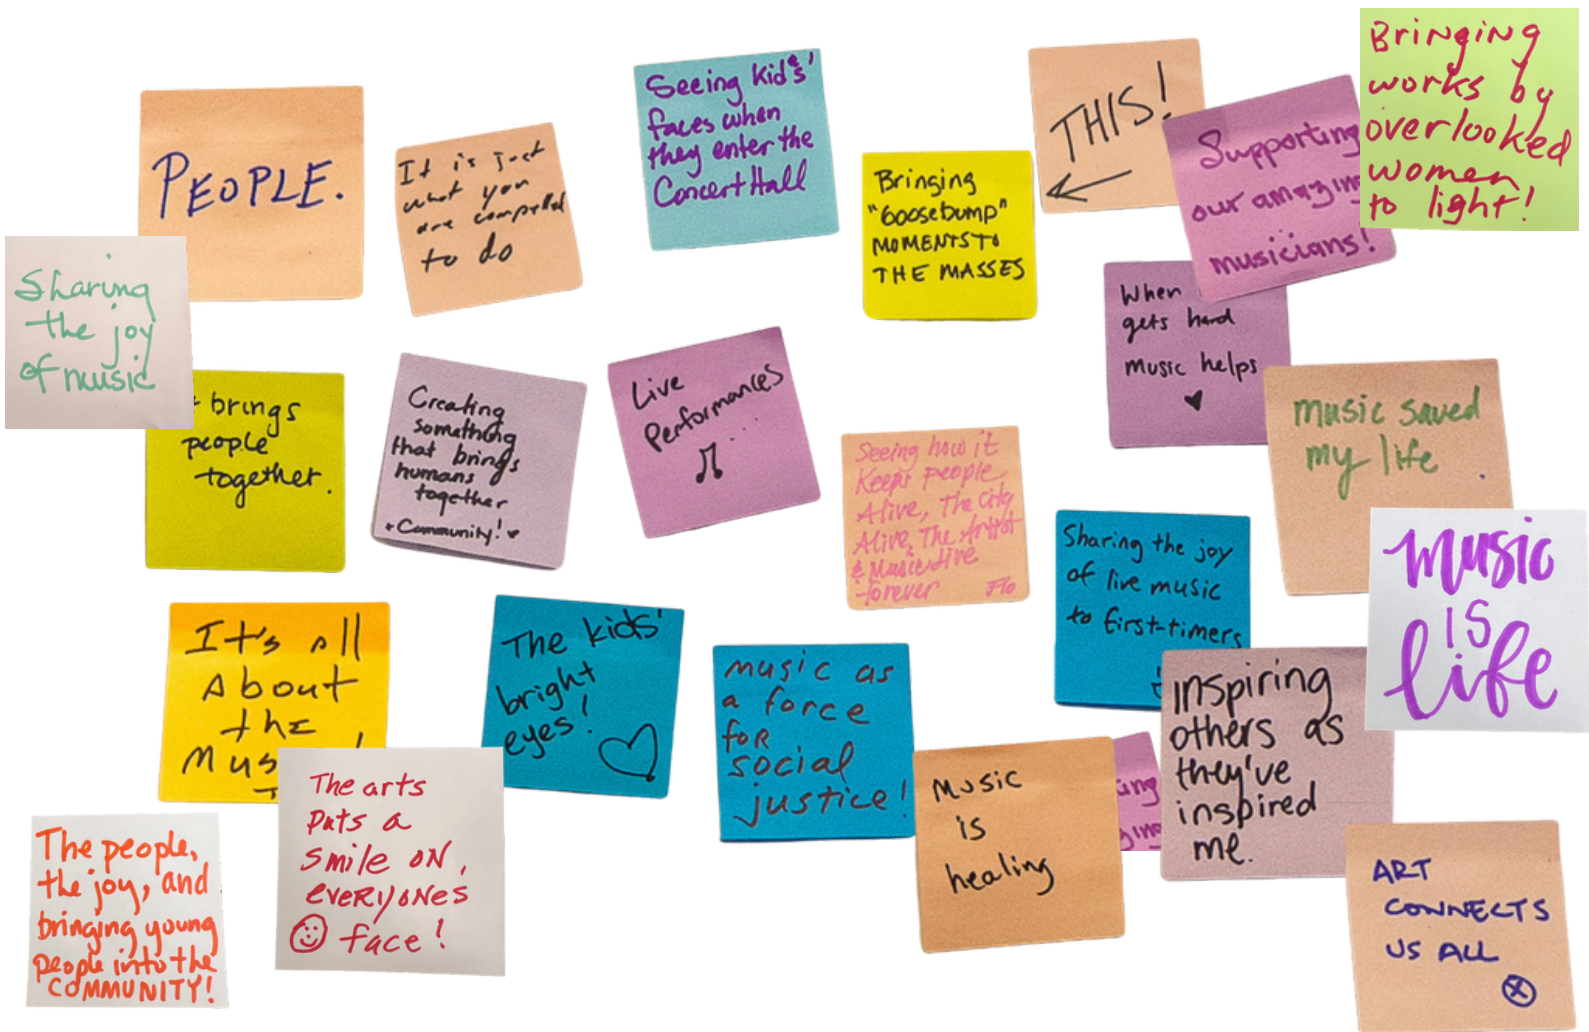 PEOPLE.
It is just
what you
are compelled
to do
Seeing kids'
faces when
they enter the
Concert Hall
Bringing
"Goosebump"
MOMENTS TO
THE MASSES
THIS!
Supporting
our amazing
musicians!
Bringing
works by
overlooked
women
to light!
Sharing
the joy
of music
brings
people
together.
Creating
something
that brings
humans
together
Community!
Live
Performances
....
When
gets hard
music helps
music saved
my life
Seeing how it
Keeps people
Alive, The City
Alive, The Artist
& Music Live
forever Flo
Sharing the joy
of live music
to first-timers
music
is
life
It's all
About
the
Mus
The kids'
bright
eyes!
music as
a force
for
social
justice!
Inspiring
others as
they've
inspired
me.
The arts
puts a
smile on
everyones
face!
Music
is
healing
The people,
the joy, and
bringing young
people into the
COMMUNITY!
ART
CONNECTS
US ALL